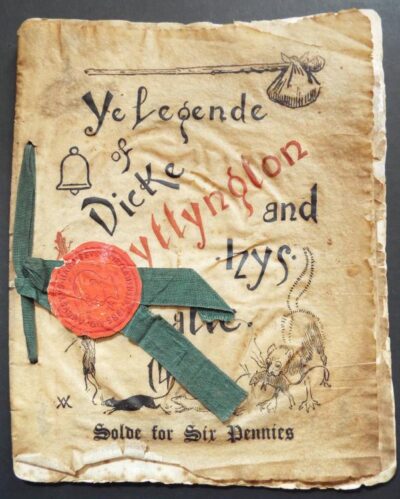 Ye Legende
of
Dicke
yttyngton
and
hys
atte.
Solde for Six Pennies